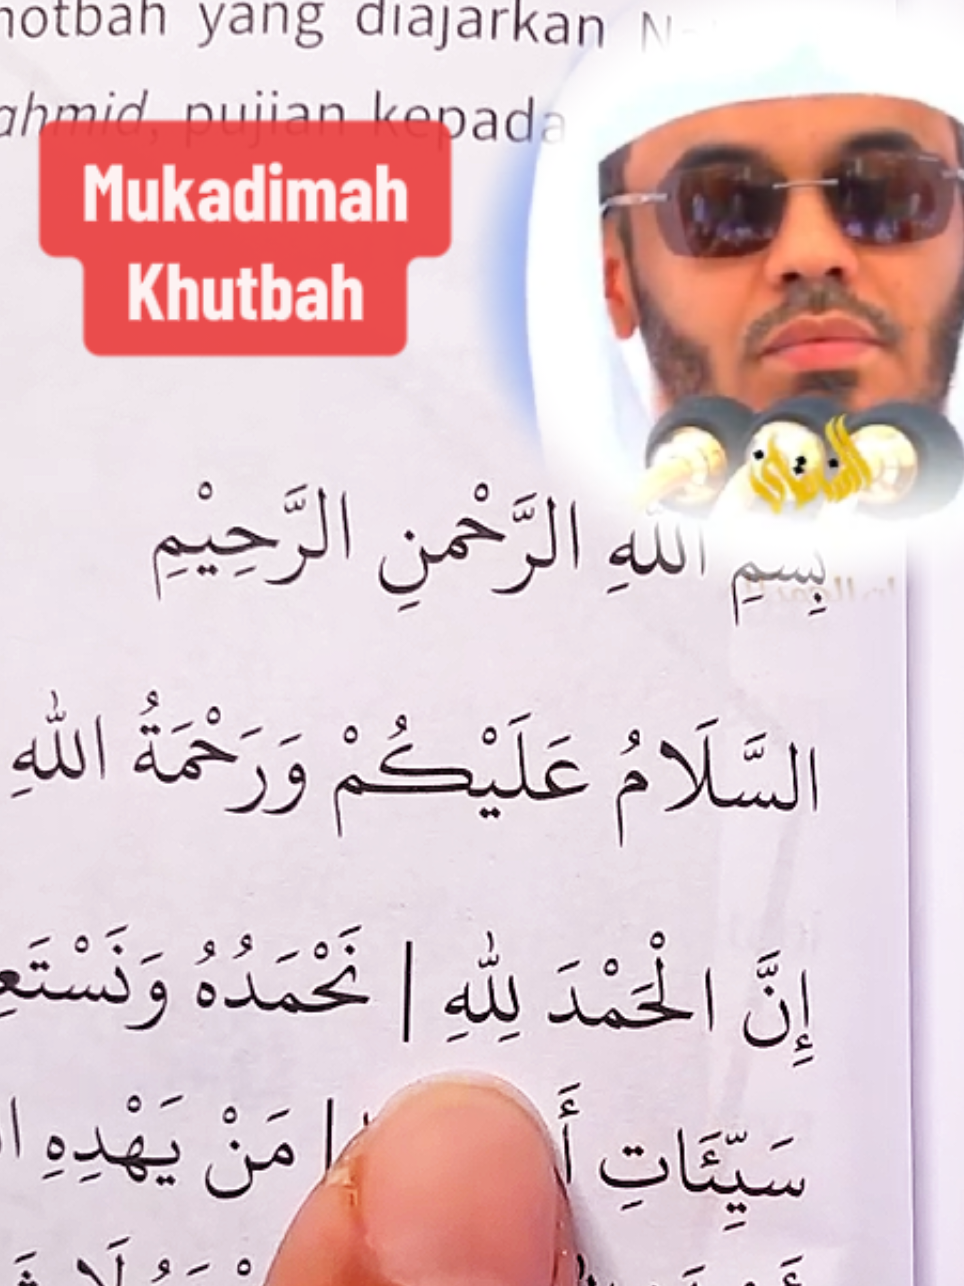 hotbah yang diajarkan
ahmid, pujian kepada
Mukadimah
Khutbah
بِسْمِ اللهِ الرَّحْمنِ الرَّحِيْمِ
السَّلَامُ عَلَيْكُمْ وَرَحْمَةُ اللهِ
إِنَّ الْحَمْدَ لِلهِ | نَحْمَدُهُ
سَيِّئَاتِ | مَنْ يَهْدِهِ